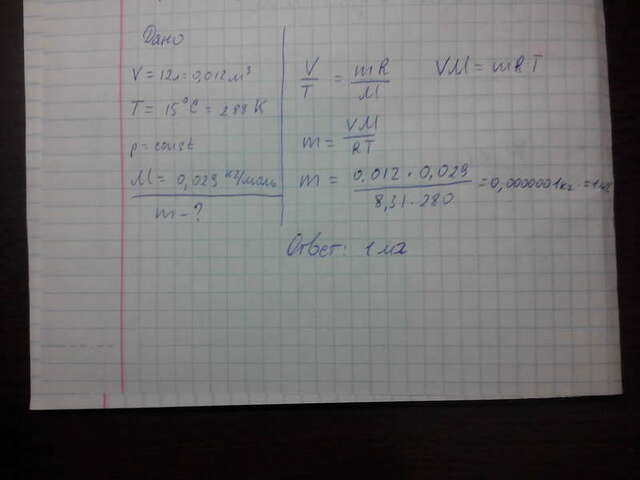 Дано
V = 12л = 0,012 м³
T = 15°C = 288 K
p = const
M = 0,029 кг/моль
m - ?
V/T = mR/M VM = mRT
m = VM/RT
m = 0,012 · 0,029 / 8,31 · 280 = 0,0000001 кг = 1 мг
Ответ: 1 мг